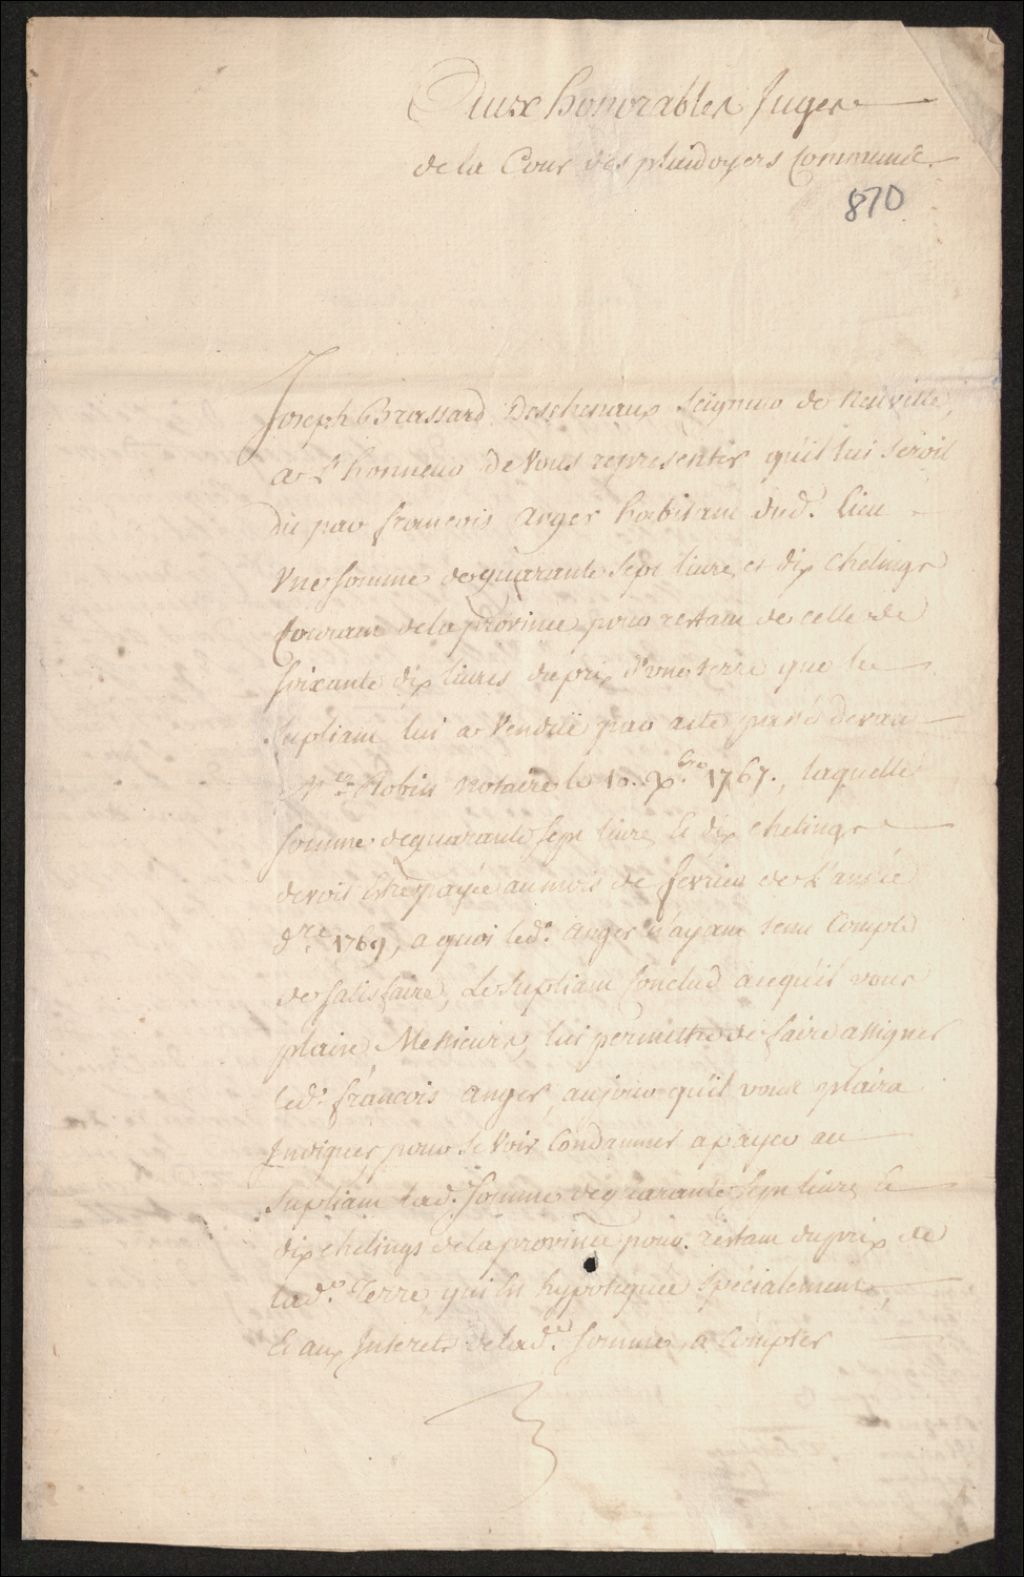 Aux honorables Juges
de la Cour des plaidoyers Commune.
870
Joseph Brassard Deschenaux Seigneur de Neuville,
a L'honneur de Vous representer qu'il lui seroit
du par françois anger habitant dud. Lieu
Une somme de quarante sept livre et dix chelings
Courant de la province pour restant de celle de
soixante dix livres du prix d'une terre que le
supliant lui a Vendüe par acte passé devant
Me. Robin Notaire le 10. Xbre. 1767., laquelle
somme de quarante sept livre & dix chelings
devoit Estre payée au mois de fevrier de L'année
dre. 1769, a quoi led. anger n'ayant tenu Compte
de satisfaire, Le supliant Conclud a ce qu'il vous
plaise Messieurs, lui permettre de faire assigner
led. françois anger, au jour qu'il vous plaira
Indiquer pour se Voir Condamner a payer au
supliant lad. somme de quarante sept livre &
dix chelings de la province pour restant du prix de
lad. Terre, qui Est hypotequée specialement,
& aux Interets de lad. somme, a Compter